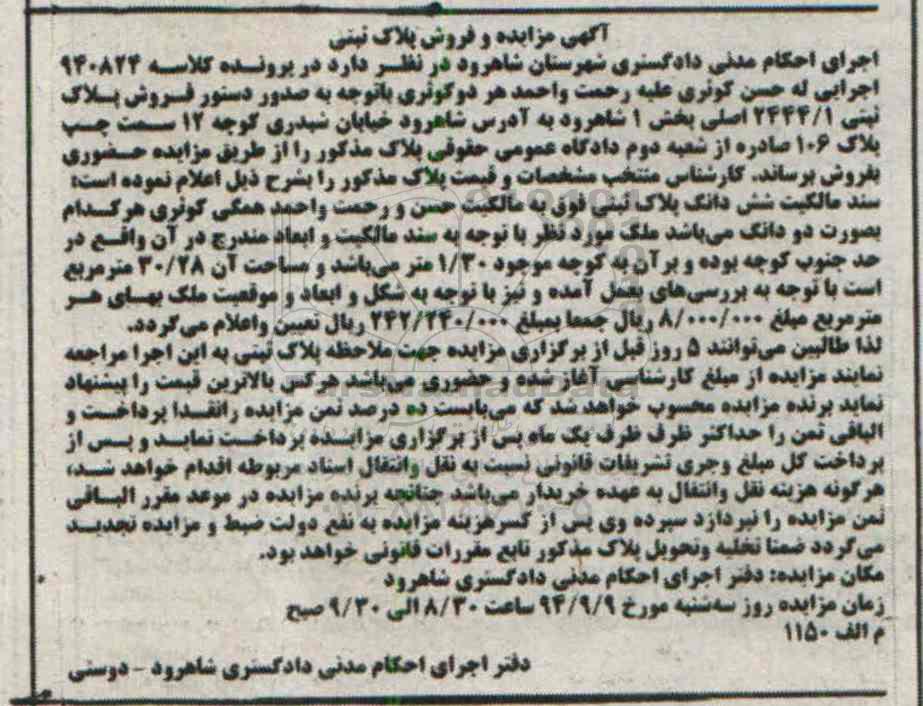 آگهی مزایده و فروش پلاک ثبتی
اجرای احکام مدنی دادگستری شهرستان شاهرود در نظر دارد در پرونده کلاسه ۹۴۰۸۲۴
اجرایی له حسن کوثری علیه رحمت واحمد هر دوکوثری باتوجه به صدور دستور فروش پلاک
ثبتی ۲۴۴۴/۱ اصلی بخش ۱ شاهرود به آدرس شاهرود خیابان شبدری کوچه ۱۲ سمت چپ
پلاک ۱۰۶ صادره از شعبه دوم دادگاه عمومی حقوقی پلاک مذکور را از طریق مزایده حضوری
بفروش برساند. کارشناس منتخب مشخصات و قیمت پلاک مذکور را بشرح ذیل اعلام نموده است:
سند مالکیت شش دانگ پلاک ثبتی فوق به مالکیت حسن و رحمت واحمد همگی کوثری هرکدام
بصورت دو دانگ می‌باشد ملک مورد نظر با توجه به سند مالکیت و ابعاد مندرج در آن واقع در
حد جنوب کوچه بوده و برآن به کوچه موجود ۱/۳۰ متر می‌باشد و مساحت آن ۳۰/۲۸ مترمربع
است با توجه به بررسی‌های بعمل آمده و نیز با توجه به شکل و ابعاد و موقعیت ملک بهای هر
مترمربع مبلغ ۸/۰۰۰/۰۰۰ ریال جمعا بمبلغ ۲۴۲/۲۴۰/۰۰۰ ریال تعیین واعلام می‌گردد.
لذا طالبین می‌توانند ۵ روز قبل از برگزاری مزایده جهت ملاحظه پلاک ثبتی به این اجرا مراجعه
نمایند مزایده از مبلغ کارشناسی آغاز شده و حضوری می‌باشد هرکس بالاترین قیمت را پیشنهاد
نماید برنده مزایده محسوب خواهد شد که می‌بایست ده درصد ثمن مزایده رانقدا پرداخت و
الباقی ثمن را حداکثر ظرف ظرف یک ماه پس از برگزاری مزایده پرداخت نماید و پس از
پرداخت کل مبلغ وجری تشریفات قانونی نسبت به نقل وانتقال اسناد مربوطه اقدام خواهد شد،
هرگونه هزینه نقل وانتقال به عهده خریدار می‌باشد چنانچه برنده مزایده در موعد مقرر الباقی
ثمن مزایده را نپردازد سپرده وی پس از کسرهزینه مزایده به نفع دولت ضبط و مزایده تجدید
می‌گردد ضمنا تخلیه وتحویل پلاک مذکور تابع مقررات قانونی خواهد بود.
مکان مزایده: دفتر اجرای احکام مدنی دادگستری شاهرود
زمان مزایده روز سه‌شنبه مورخ ۹۴/۹/۹ ساعت ۸/۳۰ الی ۹/۳۰ صبح
م الف ۱۱۵۰
دفتر اجرای احکام مدنی دادگستری شاهرود - دوستی